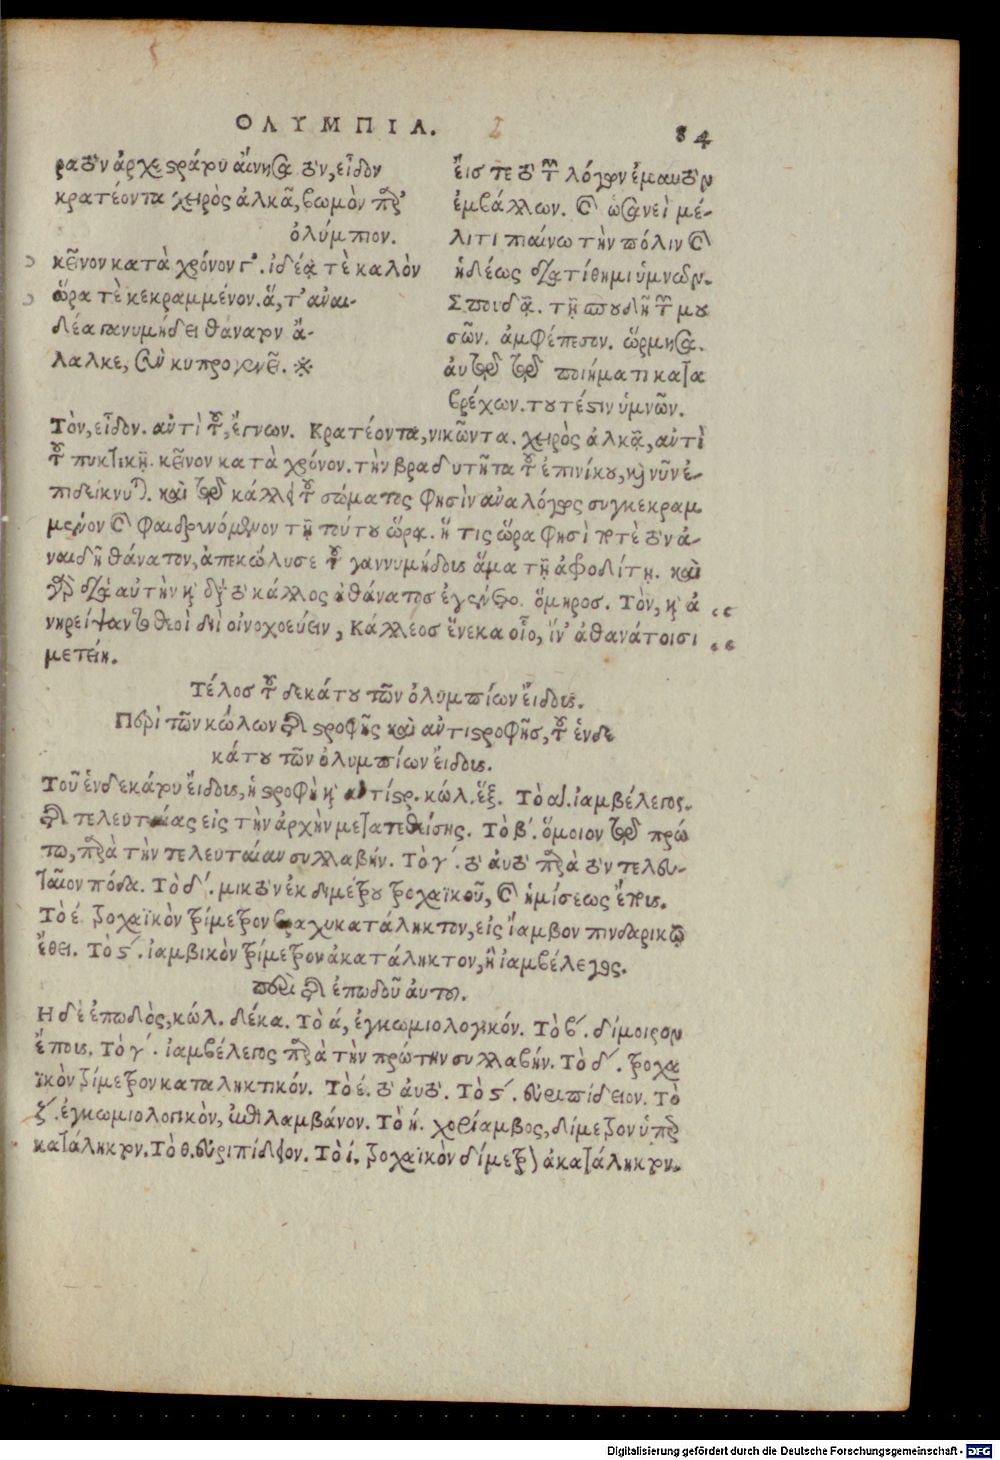 ΟΛΥΜΠΙΑ.
84
ρατὸν ἀρχεστράτου αἴνησα τὸν, εἶδον
κρατέοντα χειρὸς ἀλκᾷ, βωμὸν παρ'
ὀλύμπιον.
κεῖνον κατὰ χρόνον γ'. ἰδέᾳ τὲ καλὸν
ὥρᾳ τὲ κεκραμμένον. ἅ, τ' ἀναι-
δέα γανυμήδει θάνατον ἄ-
λαλκε, σὺν κυπρογενεῖ. ※
εἴς τε τὸ τῶν λόγον ἐμαυτὸν
ἐμβάλλων. καὶ ὡσανεὶ μέ-
λιτι πιαίνω τὴν πόλιν καὶ
ἡδέως διατίθημι ὑμνῶν.
Σποιδᾷ. τῇ σπουδῇ τῶν μου
σῶν. ἀμφέπεσον. ὥρμησα.
ἀυτῷ τῷ ποιήματι κατα
βρέχων. τουτέστιν ὑμνῶν.
Τὸν, εἶδον. αντὶ τοῦ, ἔγνων. Κρατέοντα, νικῶντα. χειρὸς ἀλκᾷ, αὐτὶ
τοῦ πυκτικῇ. κεῖνον κατὰ χρόνον. τὴν βραδυτῆτα τοῦ ἐπινίκου, καὶ νῦν ἐ-
πιδείκνυται. καὶ τῷ κάλλει τοῦ σώματος φησὶν ἀναλόγως συγκεκραμ
μένον καὶ φαιδρυνόμενον τῇ τούτου ὥρᾳ. ἥ τις ὥρα φησὶ ποτὲ τὸν ἀ-
ναιδῆ θάνατον, ἀπεκώλυσε τοῦ γαννυμήδους ἅμα τῇ ἀφοδίτῃ. καὶ
γὰρ διὰ αὐτὴν καὶ διὰ τὸ κάλλος ἀθάνατος ἐγένετο. ὅμηρος. Τὸν, καὶ ἀ
νηρείψαντο θεοὶ διὶ οἰνοχοεύειν, Κάλλεοσ ἕνεκα οἷο, ἵν' ἀθανάτοισι
μετείη.
Τέλοσ τοῦ δεκάτου τῶν ὀλυμπίων εἴδους.
Περὶ τῶν κώλων τῆς στροφῆς καὶ αντιστροφῆσ, τοῦ ἑνδε
κάτου τῶν ὀλυμπίων εἴδους.
Τοῦ ἑνδεκάτου εἴδους, ἡ στροφὴ καὶ αντίστρ. κώλ. ἕξ. Τὸ α'. ἰαμβέλεγος.
τῆς τελευταίας εἰς τὴν ἀρχὴν μετατεθείσης. Τὸ β'. ὅμοιον τῷ πρώ
τῳ, παρὰ τὴν τελευταίαν συλλαβήν. Τὸ γ'. τὸ ἀυτὸ παρὰ τὸν τελευ-
ταῖον πόδα. Τὸ δ'. μικτὸν ἐκ διμέτρου τροχαϊκοῦ, καὶ ἡμίσεως ἔπους.
Τὸ έ. τροχαϊκὸν τρίμετρον βραχυκατάληκτον, εἰς ἴαμβον πινδαρικῷ
ἔθει. Τὸ ϛ'. ἰαμβικὸν τρίμετρον ἀκατάληκτον, ἢ ἰαμβέλεγος.
περὶ τῆς ἐπωδοῦ ἀυτου.
Η δὲ ἐπωδὸς, κώλ. δέκα. Τὸ ά, ἐγκωμιολογικόν. Τὸ β'. δίμοιρον
ἔπους. Τὸ γ'. ἰαμβέλεγος παρὰ τὴν πρώτην συλλαβήν. Τὸ δ'. τροχα
ϊκὸν τρίμετρον καταληκτικόν. Τὸ έ. τὸ ἀυτό. Τὸ ϛ'. ἐυριπίδειον. Τὸ
ζ'. ἐγκωμιολογικὸν, ἐπιλαμβάνον. Τὸ ή. χορίαμβος, δίμετρον ὑπερ
κατάληκτον. Τὸ θ. ἐυριπίδειον. Τὸ ί. τροχαϊκὸν δίμετρον ἀκατάληκτον.
Digitalisierung gefördert durch die Deutsche Forschungsgemeinschaft - DFG